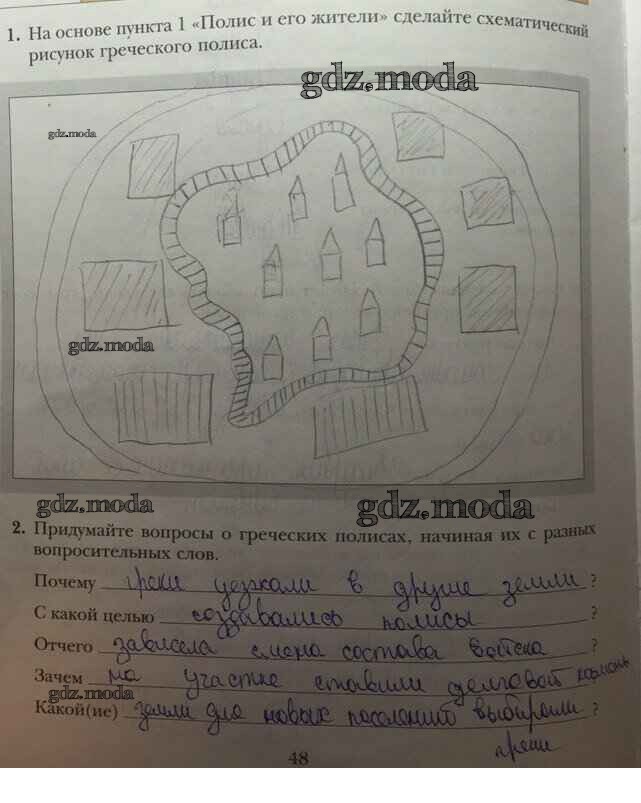 1. На основе пункта 1 «Полис и его жители» сделайте схематический
рисунок греческого полиса.
gdz.moda
gdz.moda
gdz.moda
gdz.moda
gdz.moda
2. Придумайте вопросы о греческих полисах, начиная их с разных
вопросительных слов.
Почему греки уезжали в другие земли ?
С какой целью создавались полисы ?
Отчего зависела смена состава войска ?
Зачем на участке ставили долговой камень
gdz.moda
Какой(ие) земли для новых поселений выбирали ?
греки
48